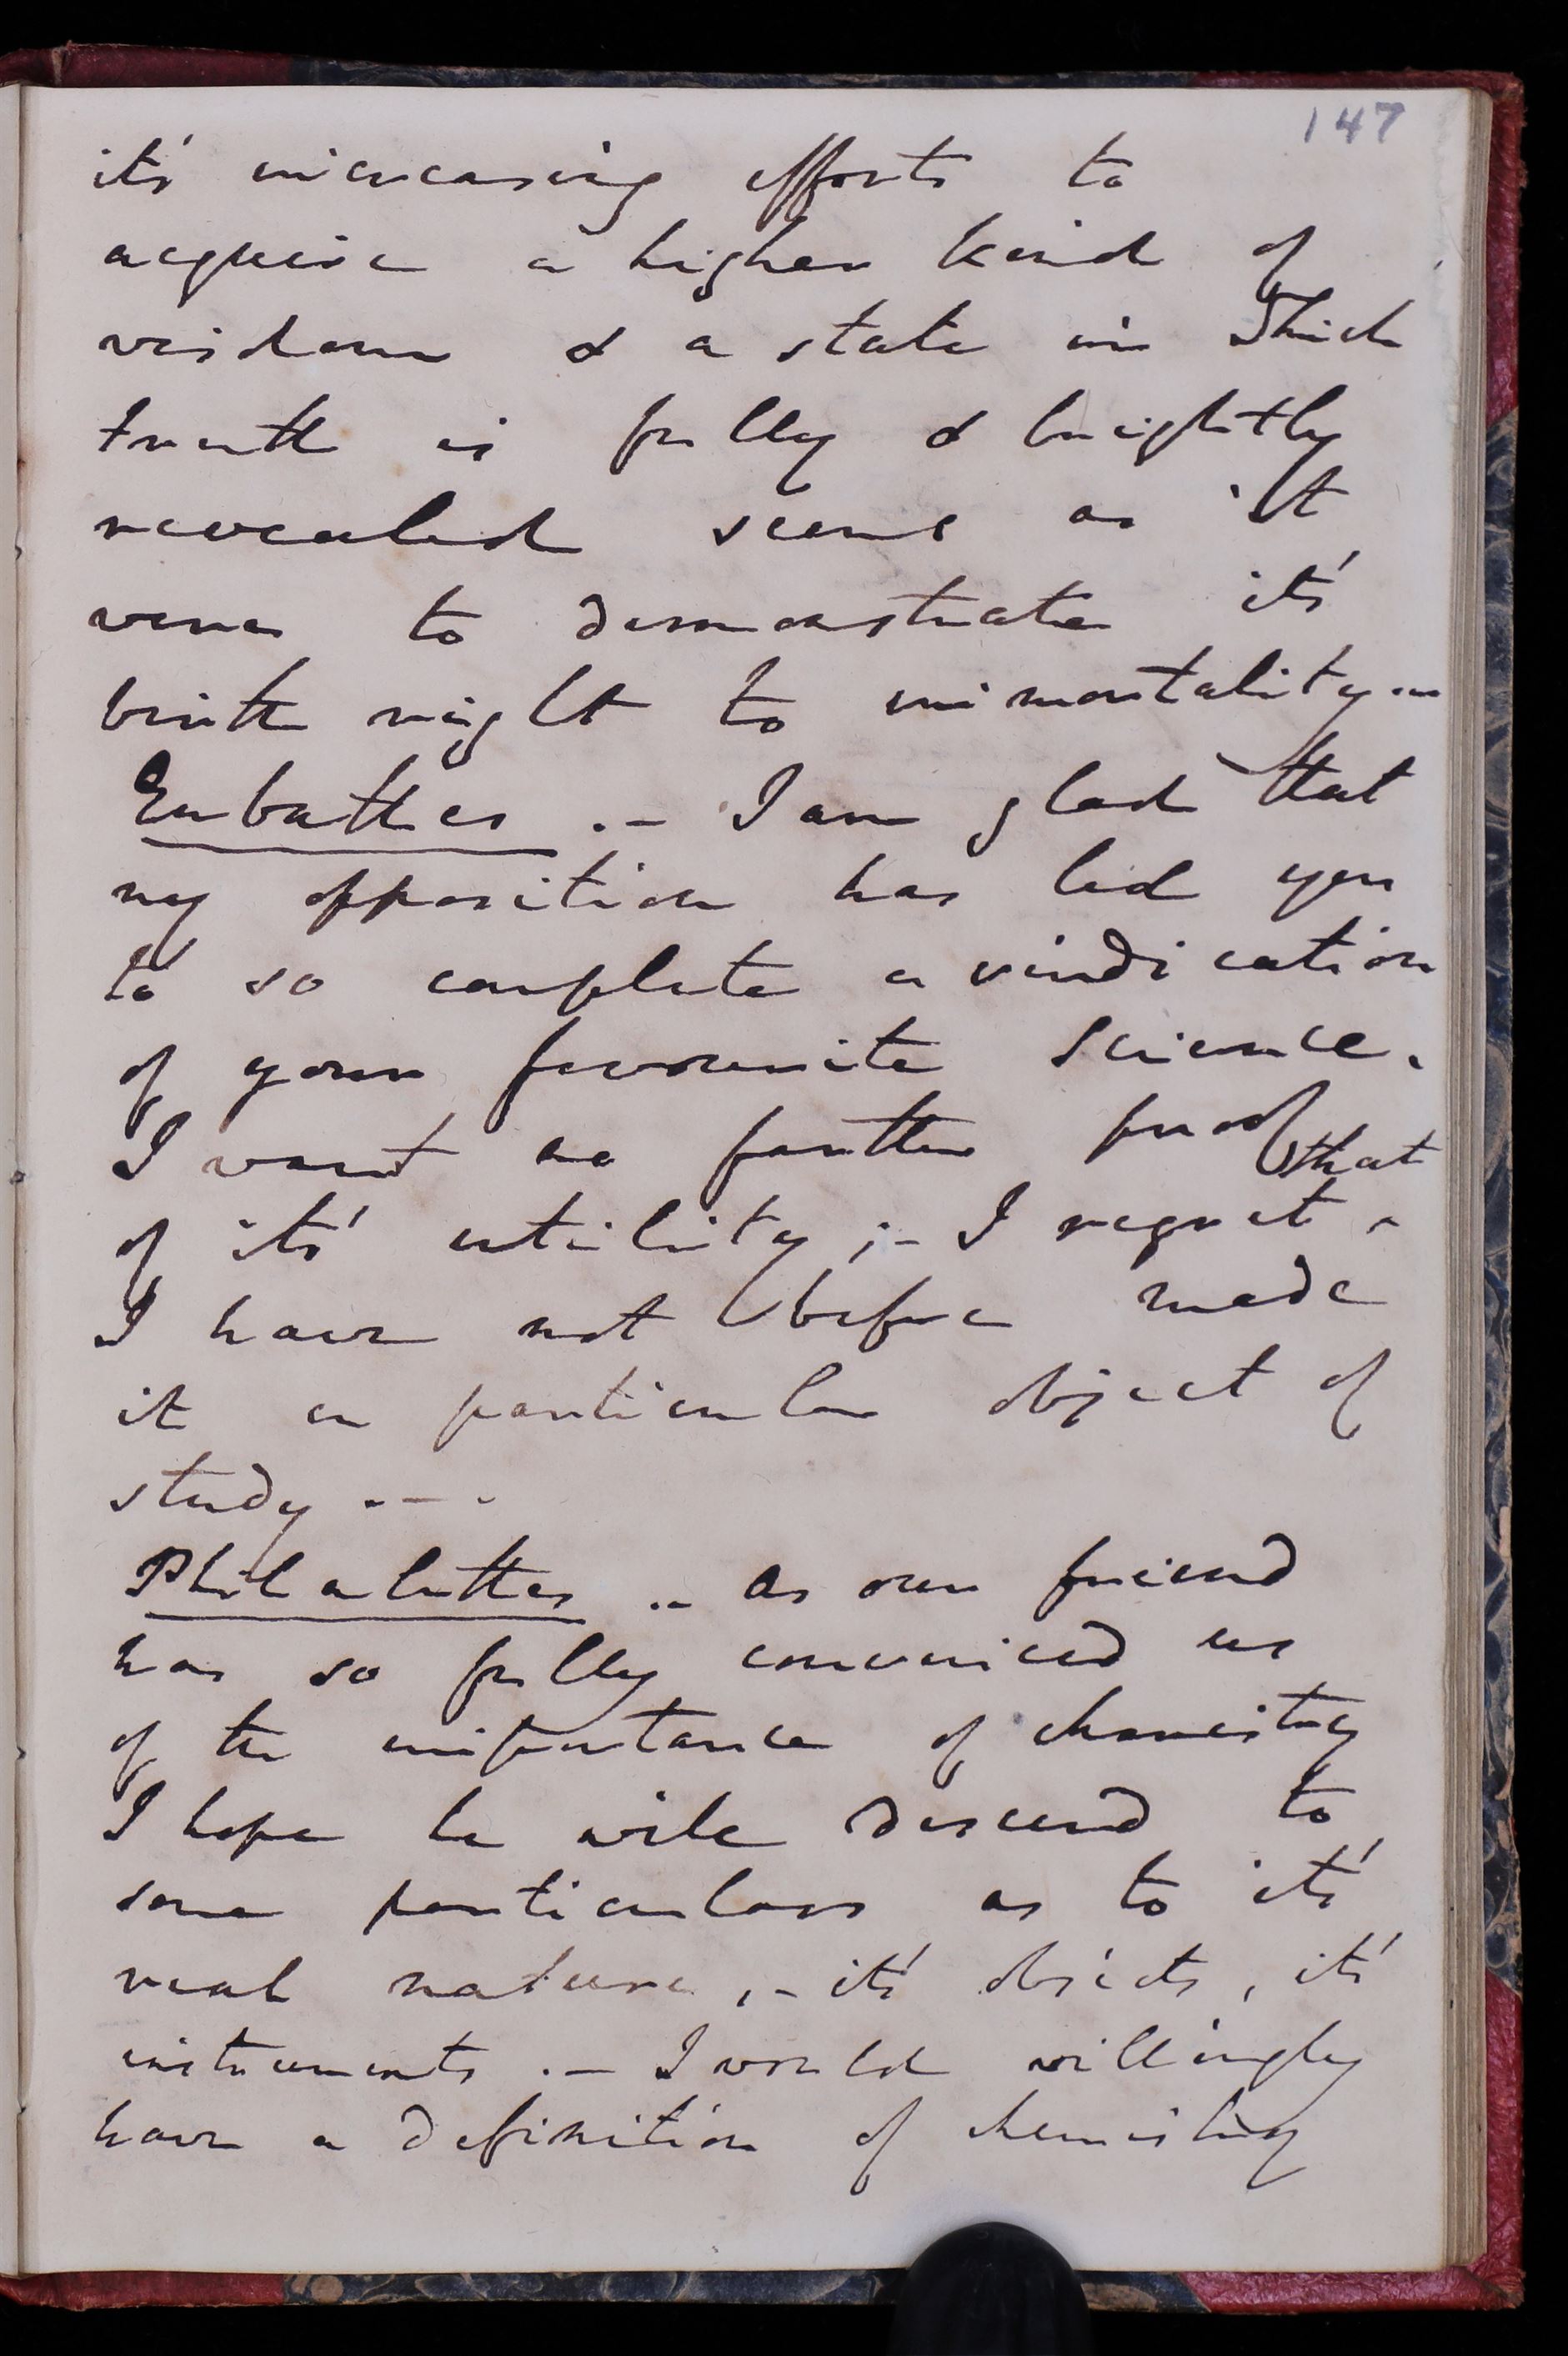 147
it's increasing efforts to
acquire a higher kind of
wisdom & a state in which
truth is fully & brightly
revealed seems as it
were to demonstrate it's
birth right to immortality.—
Eubathes .— I am glad that
my opposition has led you
to so complete a vindication
of your favourite science.
I want no farther proof
of it's utility ;— I regret that
I have not before made
it a particular object of
study .—.
Philalethes .. As our friend
has so fully convinced us
of the importance of chemistry
I hope he will descend to
some particulars as to it's
real nature, – it's objects, it's
instruments .— I would willingly
have a definition of chemistry